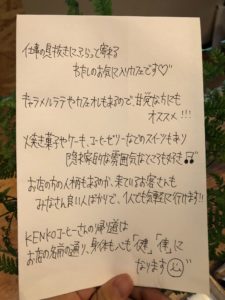 仕事の息抜きにふらっと寄れる
わたしのお気に入りカフェです♡
キャラメルラテやカフェオレもあるので、甘党な方にも
オススメ!!!
焼き菓子やケーキ、コーヒーゼリーなどのスイーツもあり
隠れ家的な雰囲気なところも好き♬
お店の方の人柄もあるのか、来ているお客さんも
みなさん良い人ばかりで、1人でも気軽に行けます!!
KENKOコーヒーさんの帰り道は
お店の名前の通り、身体も心も「健」「康」に
なります